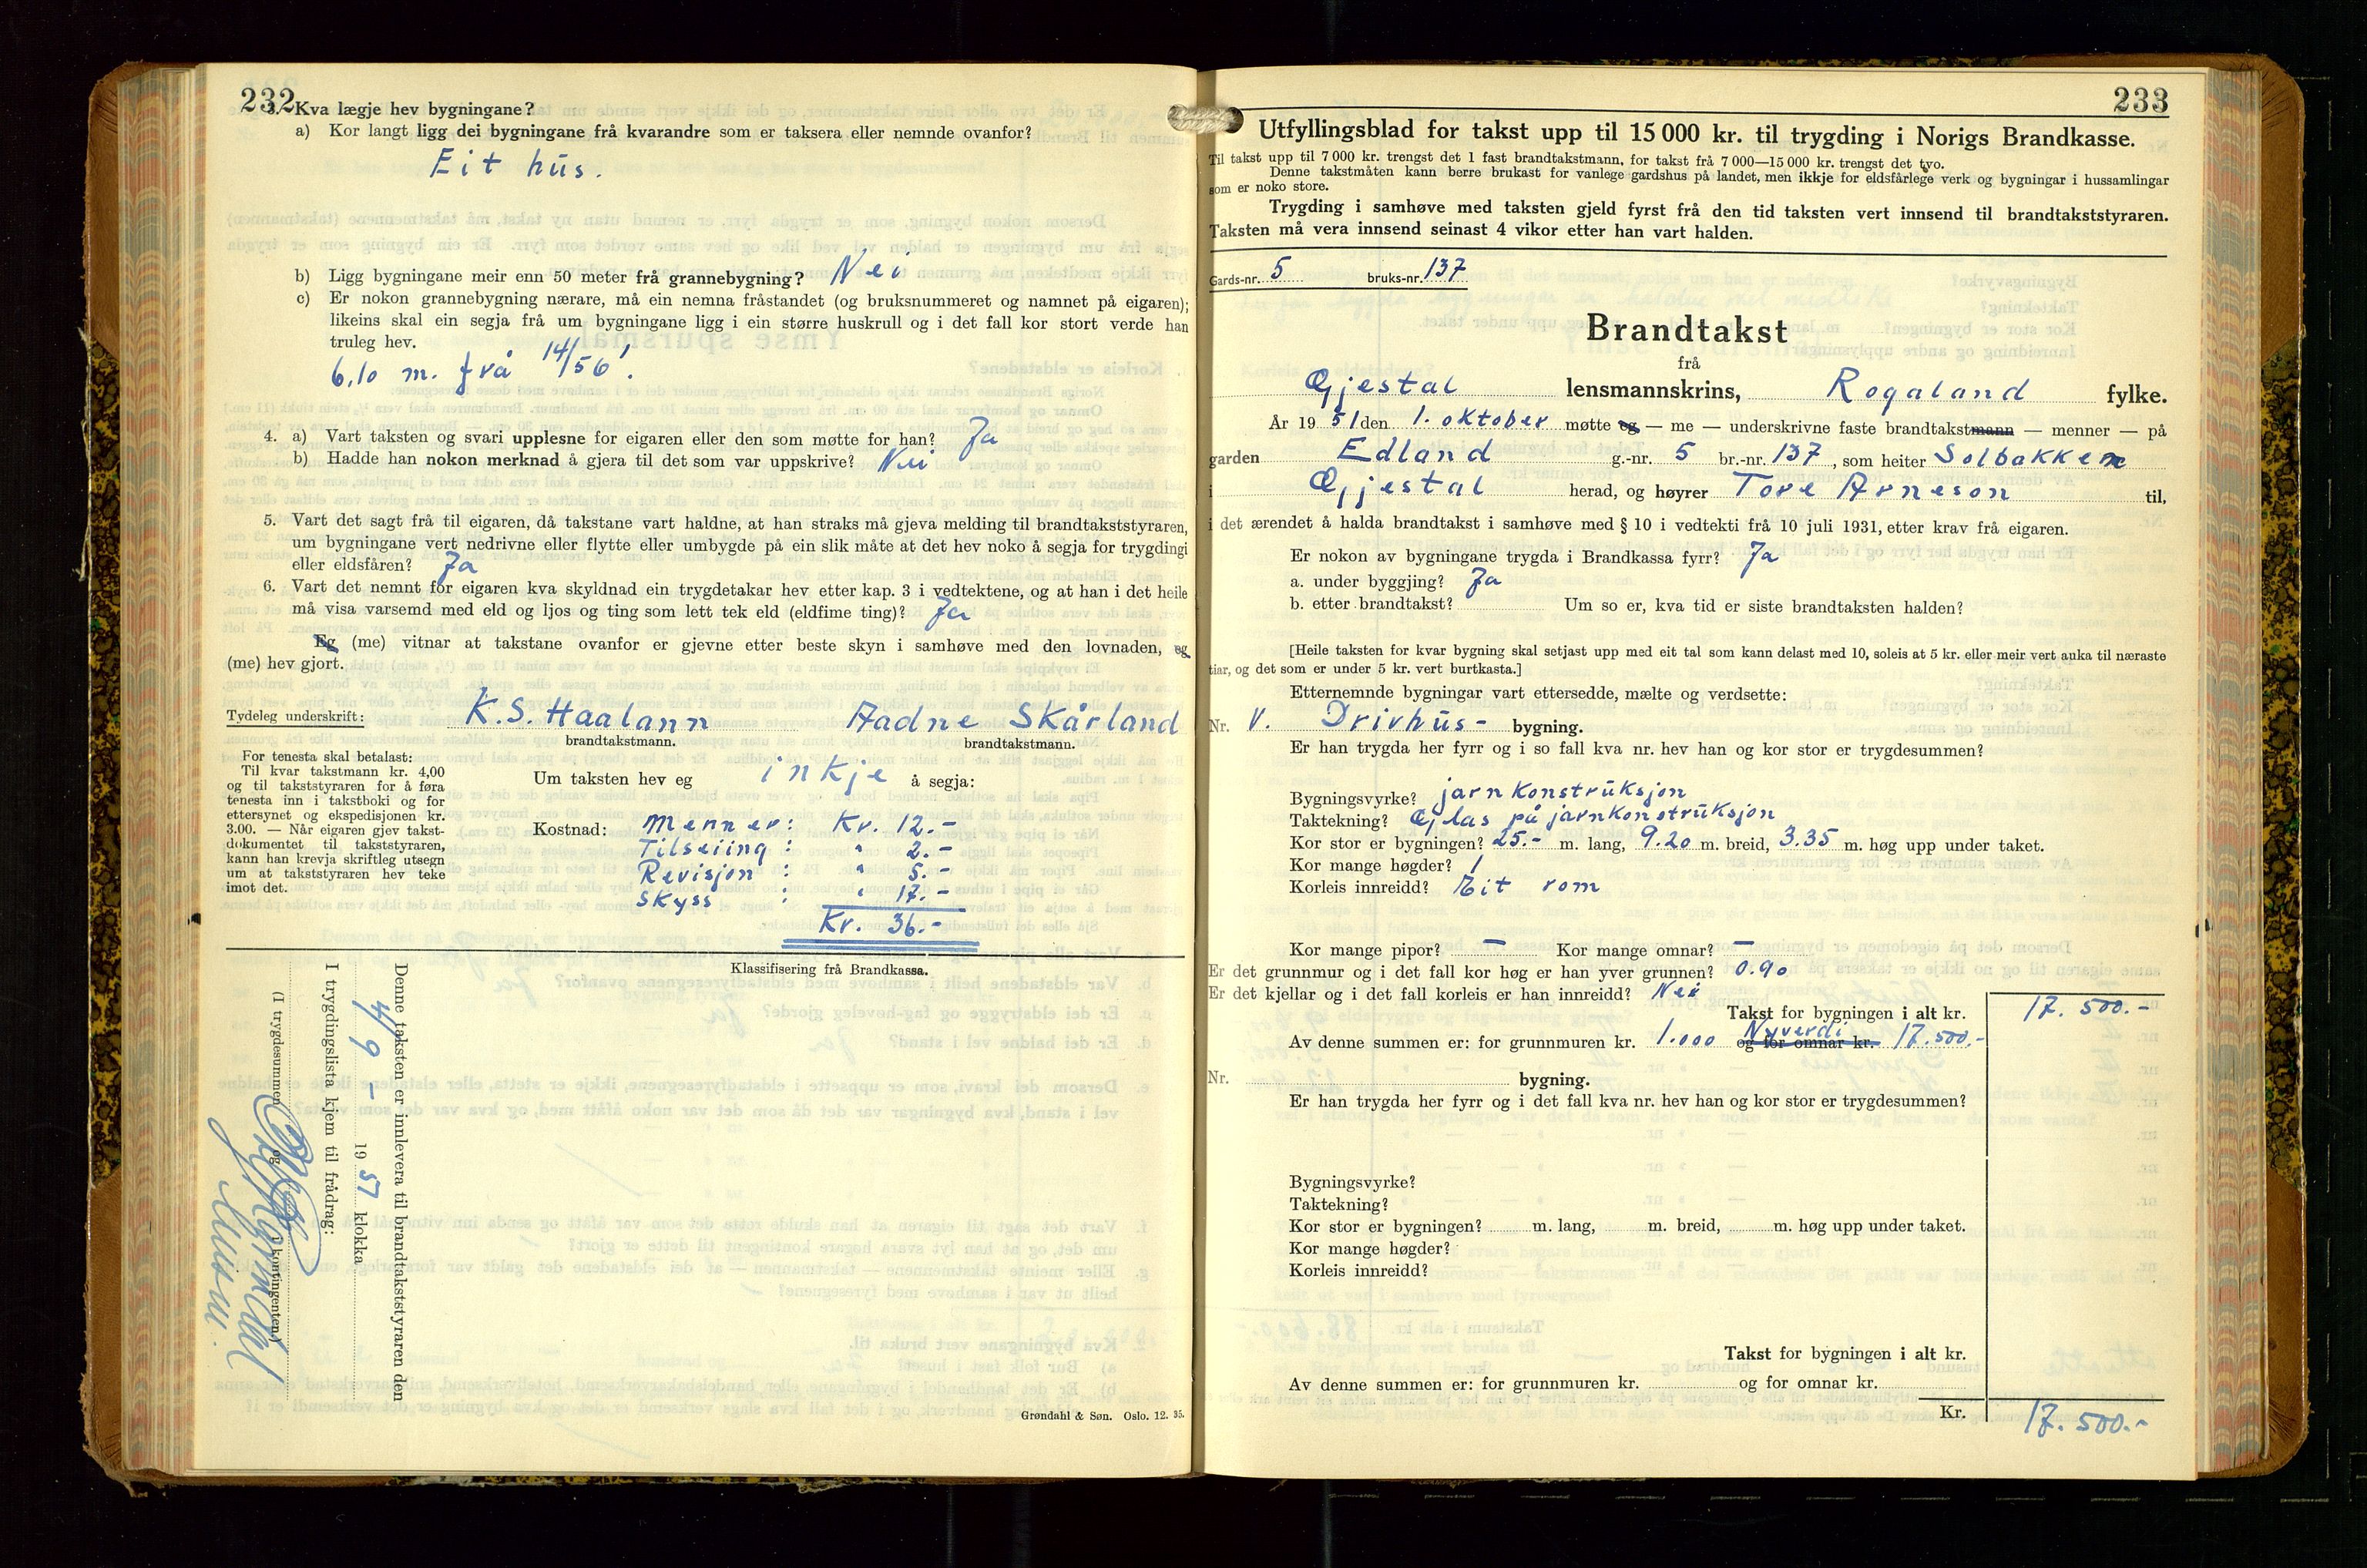 232
3. Kva lægje hev bygningane?
a) Kor langt ligg dei bygningane frå kvarandre som er taksera eller nemnde ovanfor?
Eit hus.
b) Ligg bygningane meir enn 50 meter frå grannebygning? Nei
c) Er nokon grannebygning nærare, må ein nemna fråstandet (og bruksnummeret og namnet på eigaren);
likeins skal ein segja frå um bygningane ligg i ein større huskrull og i det fall kor stort verde han
truleg hev.
6.10 m. frå 14/56!
4. a) Vart taksten og svari upplesne for eigaren eller den som møtte for han? Ja
b) Hadde han nokon merknad å gjera til det som var uppskrive? Nei
5. Vart det sagt frå til eigaren, då takstane vart haldne, at han straks må gjeva melding til brandtakststyraren,
um bygningane vert nedrivne eller flytte eller umbygde på ein slik måte at det hev noko å segja for trygdingi
eller eldsfåren? Ja
6. Vart det nemnt for eigaren kva skyldnad ein trygdetakar hev etter kap. 3 i vedtektene, og at han i det heile
må visa varsemd med eld og ljos og ting som lett tek eld (eldfime ting)? Ja
Eg (me) vitnar at takstane ovanfor er gjevne etter beste skyn i samhøve med den lovnaden, eg
(me) hev gjort.
Tydeleg underskrift: K.S. Haalann Aadne Skårland
brandtakstmann. brandtakstmann.
For tenesta skal betalast:
Til kvar takstmann kr. 4,00
og til takststyraren for å føra
tenesta inn i takstboki og for
ettersynet og ekspedisjonen kr.
3.00. — Når eigaren gjev takst-
dokumentet til takststyraren,
kann han krevja skriftleg utsegn
um at takststyraren hev teke
imot det.
Um taksten hev eg inkje å segja:
Kostnad: Menner: Kr. 12.-
Tilseiing: " 2.-
Revisjon: " 5.-
Skyss : " 17.-
Kr. 36.-
Klassifisering frå Brandkassa.
Denne taksten er innlevera til brandtakststyraren den
4/9 - 1951 klokka
I trygdingslista kjem til frådrag:
(I trygdesummen og i kontingenten)
Grøndahl & Søn. Oslo. 12. 35.
233
Utfyllingsblad for takst upp til 15 000 kr. til trygding i Norigs Brandkasse.
Til takst upp til 7 000 kr. trengst det 1 fast brandtakstmann, for takst frå 7 000—15 000 kr. trengst det tvo.
Denne takstmåten kann berre brukast for vanlege gardshus på landet, men ikkje for eldsfårlege verk og bygningar i hussamlingar
som er noko store.
Trygding i samhøve med taksten gjeld fyrst frå den tid taksten vert innsend til brandtakststyraren.
Taksten må vera innsend seinast 4 vikor etter han vart halden.
Gards-nr. 5 bruks-nr. 137
Brandtakst
frå
Gjestal lensmannskrins, Rogaland fylke.
År 1951 den 1. oktober møtte eg — me — underskrivne faste brandtakstmann — menner — på
garden Edland g.-nr. 5 br.-nr. 137, som heiter Solbakken
i Gjestal herad, og høyrer Tore Arneson til,
i det ærendet å halda brandtakst i samhøve med § 10 i vedtekti frå 10 juli 1931, etter krav frå eigaren.
Er nokon av bygningane trygda i Brandkassa fyrr? Ja
a. under byggjing? Ja
b. etter brandtakst? Um so er, kva tid er siste brandtaksten halden?
[Heile taksten for kvar bygning skal setjast upp med eit tal som kann delast med 10, soleis at 5 kr. eller meir vert auka til næraste
tiar, og det som er under 5 kr. vert burtkasta.]
Etternemnde bygningar vart ettersedde, mælte og verdsette:
Nr. V. Drivhus- bygning.
Er han trygda her fyrr og i so fall kva nr. hev han og kor stor er trygdesummen?
Bygningsvyrke? jarnkonstruksjon
Taktekning? Glas på jarnkonstruksjon
Kor stor er bygningen? 25.- m. lang, 9.20 m. breid, 3.35 m. høg upp under taket.
Kor mange høgder? 1
Korleis innreidd? Eit rom
Kor mange pipor? — Kor mange omnar? —
Er det grunnmur og i det fall kor høg er han yver grunnen? 0.90
Er det kjellar og i det fall korleis er han innreidd? Nei
Takst for bygningen i alt kr. 17.500.-
Av denne summen er: for grunnmuren kr. 1.000 Nyverdi og for omnar kr. 17.500.-
Nr. bygning.
Er han trygda her fyrr og i det fall kva nr. hev han og kor stor er trygdesummen?
Bygningsvyrke?
Taktekning?
Kor stor er bygningen? m. lang, m. breid, m. høg upp under taket.
Kor mange høgder?
Korleis innreidd?
Takst for bygningen i alt kr.
Av denne summen er: for grunnmuren kr. og for omnar kr.
Kr. 17.500.-